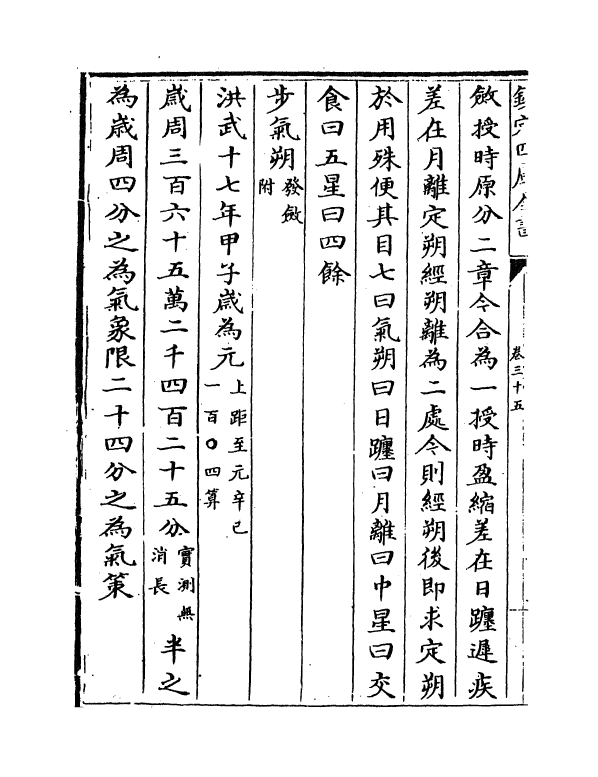 欽定四庫全書
卷三十五
斂授時原分二章今合為一授時盈縮差在日躔遲疾
差在月離定朔經朔離為二處今則經朔後即求定朔
於用殊便其目七曰氣朔曰日躔曰月離曰中星曰交
食曰五星曰四餘
步氣朔發斂附
洪武十七年甲子歲為元上距至元辛巳一百〇四算
歲周三百六十五萬二千四百二十五分實測無消長半之
為歲周四分之為氣象限二十四分之為氣策